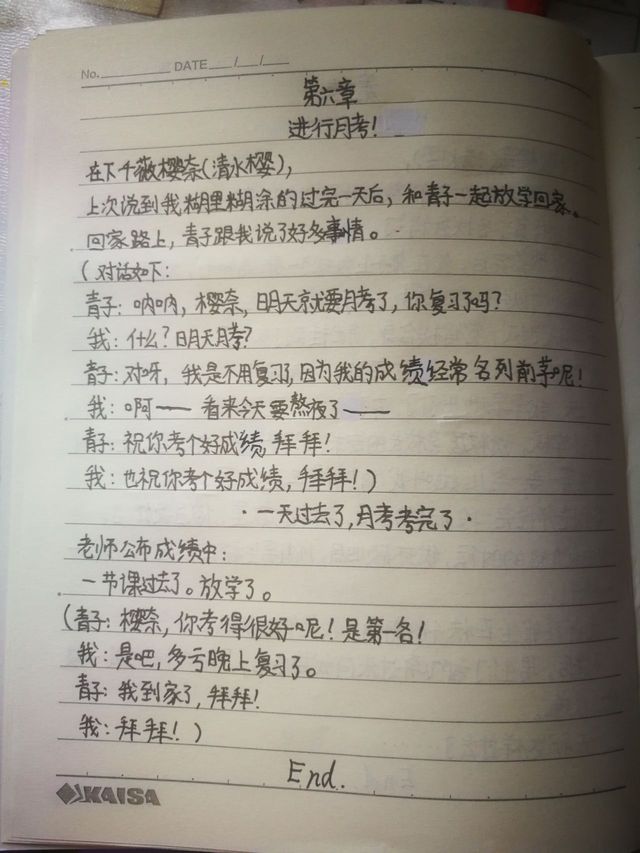 No. DATE / /
第六章
进行月考!
在下千薇樱奈(清水樱),
上次说到我糊里糊涂的过完一天后,和青子一起放学回家。
回家路上,青子跟我说了好多事情。
(对话如下:
青子:呐呐,樱奈,明天就要月考了,你复习了吗?
我:什么?明天月考?
青子:对呀,我是不用复习,因为我的成绩经常名列前茅呢!
我:啊——看来今天要熬夜了——
青子:祝你考个好成绩,拜拜!
我:也祝你考个好成绩,拜拜!)
·一天过去了,月考考完了·
老师公布成绩中:
一节课过去了。放学了。
(青子:樱奈,你考得很好呢!是第一名!
我:是吧,多亏晚上复习了。
青子:我到家了,拜拜!
我:拜拜!)
End.
KAISA